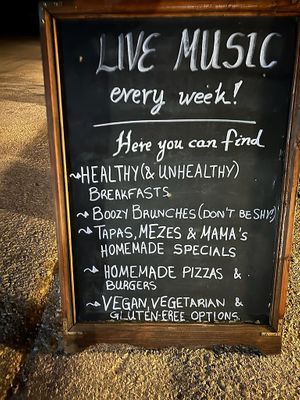 LIVE MUSIC
every week!
Here you can find
HEALTHY (& UNHEALTHY)
BREAKFASTS
BOOZY BRUNCHES (DON'T BE SHY!)
TAPAS, MEZES & MAMA'S
HOMEMADE SPECIALS
HOMEMADE PIZZAS &
BURGERS
VEGAN, VEGETARIAN &
GLUTEN-FREE OPTIONS